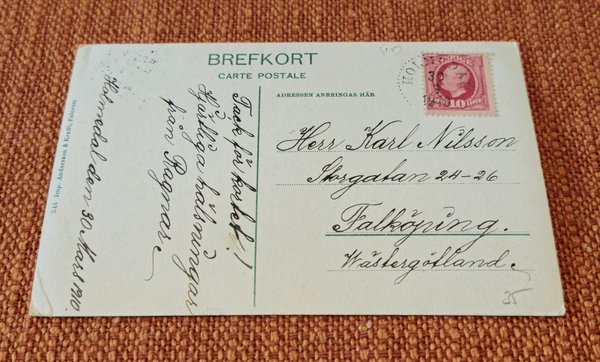 BREFKORT
CARTE POSTALE
ADRESSEN ANBRINGAS HÄR
10
Herr Karl Nilsson
Storgatan 24-26
Falköping.
Wästergötland.
35
Tack för kortet!
Hjärtliga hälsningar
från Ragnar.
Holmedal den 30 Mars 1910.
344 Imp. Andersson & Krafft, Falerum